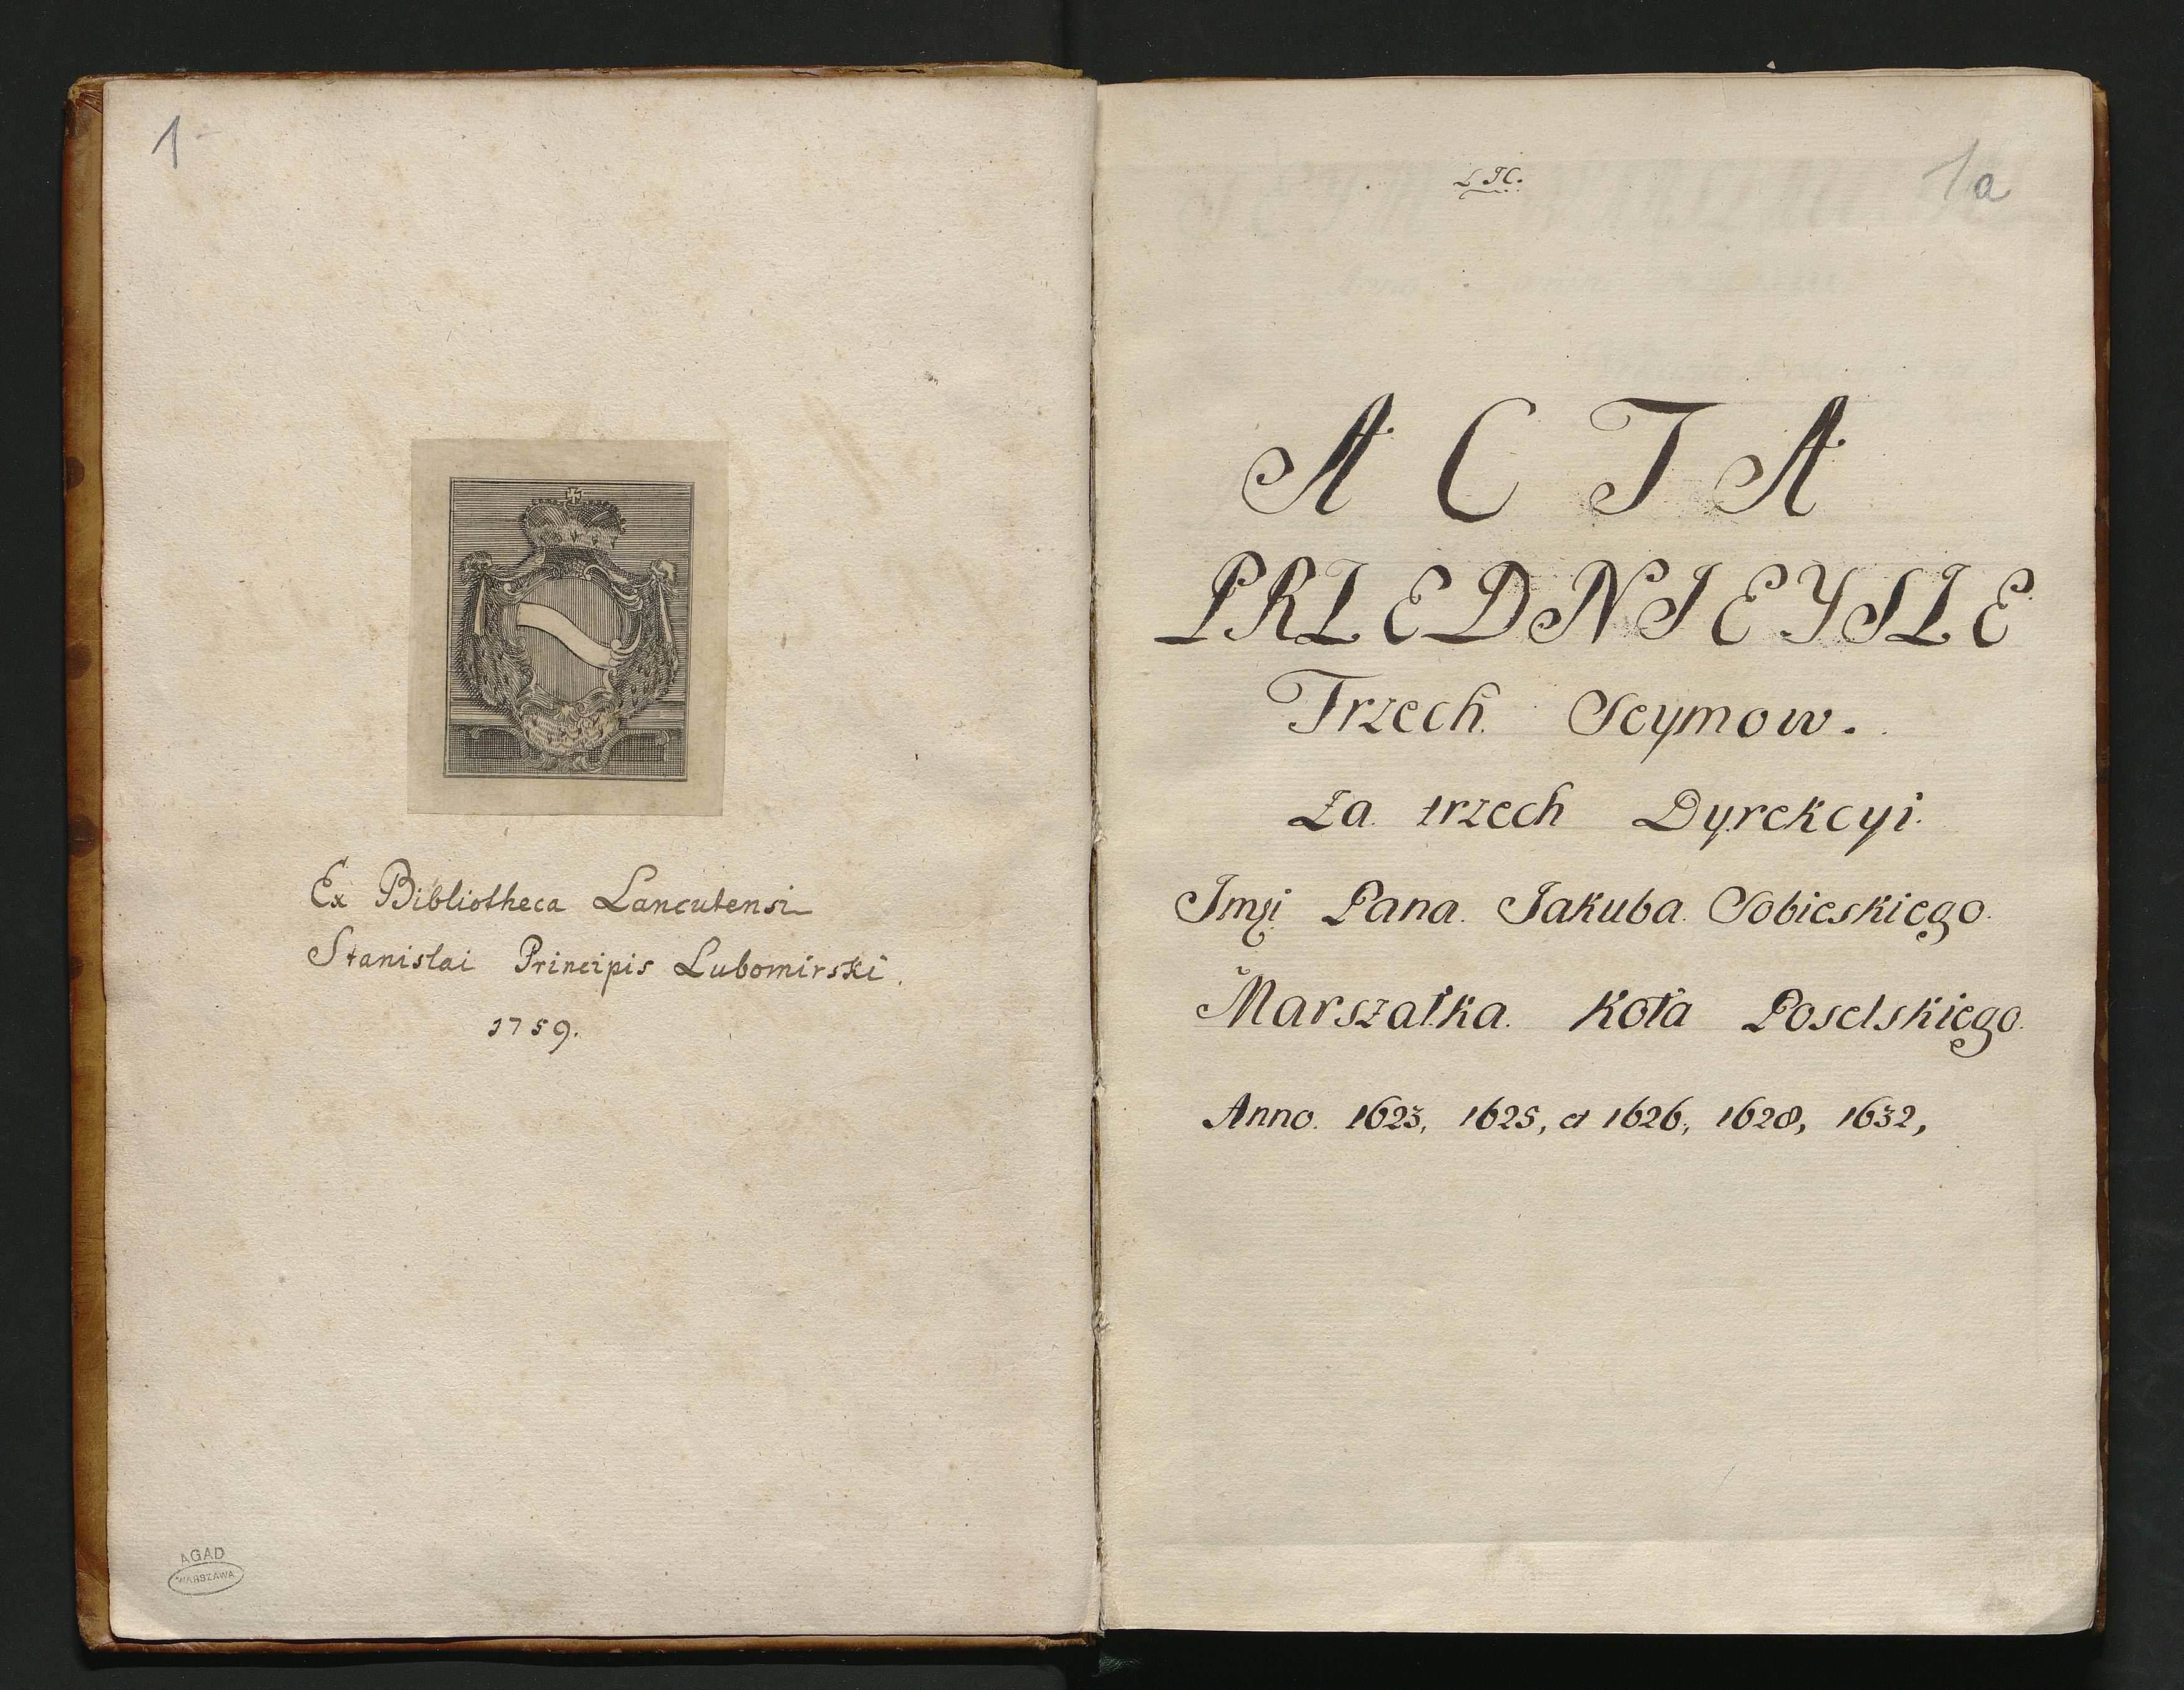 1
Ex Bibliotheca Lancutensi
Stanislai Principis Lubomirski.
1759.
AGAD
WARSZAWA
1a
ACTA
PRZEDNIEYSZE
Trzech Seymow.
Za trzech Dyrekcyi
Pana Jakuba Sobieskiego
Marszałka Koła Poselskiego
Anno 1623, 1625, et 1626, 1628, 1632,